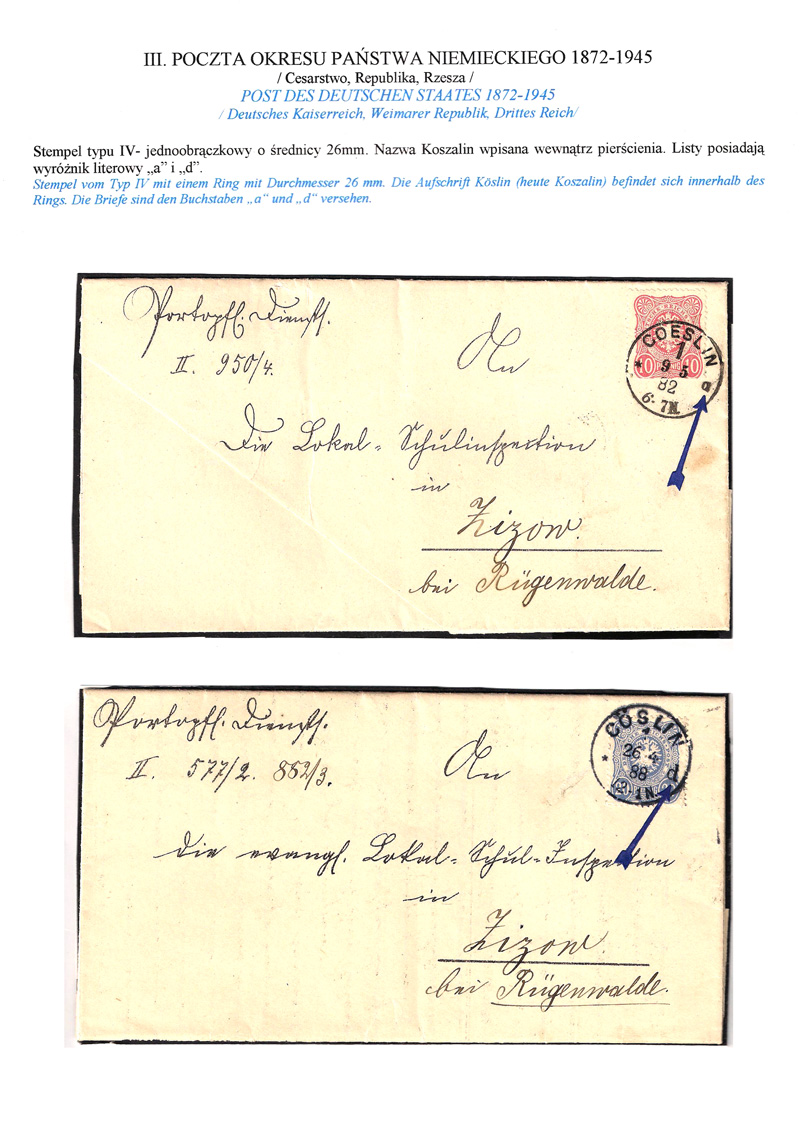 III. POCZTA OKRESU PAŃSTWA NIEMIECKIEGO 1872-1945
/ Cesarstwo, Republika, Rzesza /
POST DES DEUTSCHEN STAATES 1872-1945
/ Deutsches Kaiserreich, Weimarer Republik, Drittes Reich/
Stempel typu IV- jednoobrączkowy o średnicy 26mm. Nazwa Koszalin wpisana wewnątrz pierścienia. Listy posiadają
wyróżnik literowy „a” i „d”.
Stempel vom Typ IV mit einem Ring mit Durchmesser 26 mm. Die Aufschrift Köslin (heute Koszalin) befindet sich innerhalb des
Rings. Die Briefe sind den Buchstaben „a“ und „d“ versehen.
Portopfl. Diensts.
II. 950/4.
An
COESLIN
1
* 9 5 a
82
6-7N.
10 10
Die Lokal-Schulinspection
in
Zizow.
bei Rügenwalde.
Portopfl. Diensts.
II. 577/2. 862/3.
An
CÖSLIN
* 26 4
88 d
12-1N.
20
die evangl. Lokal-Schul-Inspektion
in
Zizow.
bei Rügenwalde.